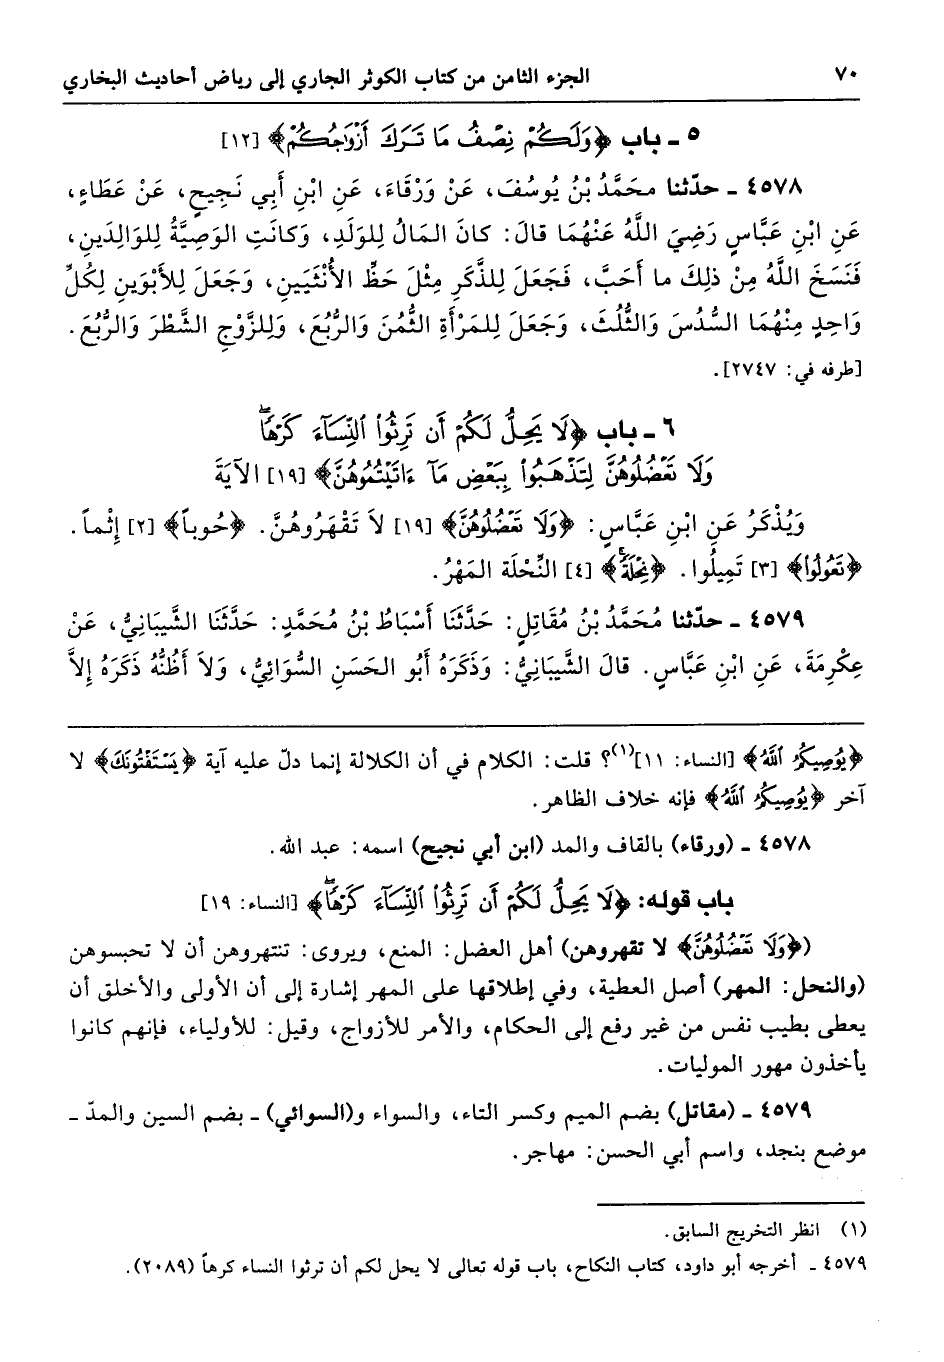 ٧٠ الجزء الثامن من كتاب الكوثر الجاري إلى رياض أحاديث البخاري
٥ ـ باب ﴿وَلَكُمْ نِصْفُ مَا تَرَكَ أَزْوَاجُكُمْ﴾ [١٢]
٤٥٧٨ ـ حدّثنا محَمَّدُ بْنُ يُوسُفَ، عَنْ وَرْقَاءَ، عَنِ ابْنِ أَبِي نَجِيحٍ، عَنْ عَطَاءٍ،
عَنِ ابْنِ عَبَّاسٍ رَضِيَ اللَّهُ عَنْهُمَا قالَ: كانَ المَالُ لِلوَلَدِ، وَكانَتِ الوَصِيَّةُ لِلوَالِدَينِ،
فَنَسَخَ اللَّهُ مِنْ ذلِكَ ما أَحَبَّ، فَجَعَلَ لِلذَّكَرِ مِثْلَ حَظِّ الأُنْثَيَينِ، وَجَعَلَ لِلأَبَوَينِ لِكُلِّ
وَاحِدٍ مِنْهُمَا السُّدُسَ وَالثُّلُثَ، وَجَعَلَ لِلمَرْأَةِ الثُّمُنَ وَالرُّبُعَ، وَلِلزَّوْجِ الشَّطْرَ وَالرُّبُعَ.
[طرفه في: ٢٧٤٧].
٦ ـ باب ﴿لَا يَحِلُّ لَكُمْ أَن تَرِثُوا۟ ٱلنِّسَآءَ كَرْهًاۖ
وَلَا تَعْضُلُوهُنَّ لِتَذْهَبُوا۟ بِبَعْضِ مَآ ءَاتَيْتُمُوهُنَّ﴾ [١٩] الآيَةَ
وَيُذْكَرُ عَنِ ابْنِ عَبَّاسٍ: ﴿وَلَا تَعْضُلُوهُنَّ﴾ [١٩] لاَ تَقْهَرُوهُنَّ. ﴿حُوباً﴾ [٢] إِثْماً.
﴿تَعُولُوا۟﴾ [٣] تَمِيلُوا. ﴿نِحْلَةً﴾ [٤] النِّحْلَة المَهْرُ.
٤٥٧٩ ـ حدّثنا مُحَمَّدُ بْنُ مُقَاتِلٍ: حَدَّثَنَا أَسْبَاطُ بْنُ مُحَمَّدٍ: حَدَّثَنَا الشَّيبَانِيُّ، عَنْ
عِكْرِمَةَ، عَنِ ابْنِ عَبَّاسٍ. قالَ الشَّيبَانِيُّ: وَذَكَرَهُ أَبُو الحَسَنِ السُّوَائِيُّ، وَلاَ أَظُنُّهُ ذَكَرَهُ إِلاَّ
﴿يُوصِيكُمُ ٱللَّهُ﴾ [النساء: ١١](١)؟ قلت: الكلام في أن الكلالة إنما دلّ عليه آية ﴿يَسْتَفْتُونَكَ﴾ لا
آخر ﴿يُوصِيكُمُ ٱللَّهُ﴾ فإنه خلاف الظاهر.
٤٥٧٨ ـ (ورقاء) بالقاف والمد (ابن أبي نجيح) اسمه: عبد الله.
باب قوله: ﴿لَا يَحِلُّ لَكُمْ أَن تَرِثُوا۟ ٱلنِّسَآءَ كَرْهًاۖ﴾ [النساء: ١٩]
(﴿وَلَا تَعْضُلُوهُنَّ﴾ لا تقهروهن) أهل العضل: المنع، ويروى: تنتهروهن أن لا تحبسوهن
(والنحل: المهر) أصل العطية، وفي إطلاقها على المهر إشارة إلى أن الأولى والأخلق أن
يعطى بطيب نفس من غير رفع إلى الحكام، والأمر للأزواج، وقيل: للأولياء، فإنهم كانوا
يأخذون مهور الموليات.
٤٥٧٩ ـ (مقاتل) بضم الميم وكسر التاء، والسواء و(السوائي) ـ بضم السين والمدّ ـ
موضع بنجد، واسم أبي الحسن: مهاجر.
(١) انظر التخريج السابق.
٤٥٧٩ ـ أخرجه أبو داود، كتاب النكاح، باب قوله تعالى لا يحل لكم أن ترثوا النساء كرهاً (٢٠٨٩).